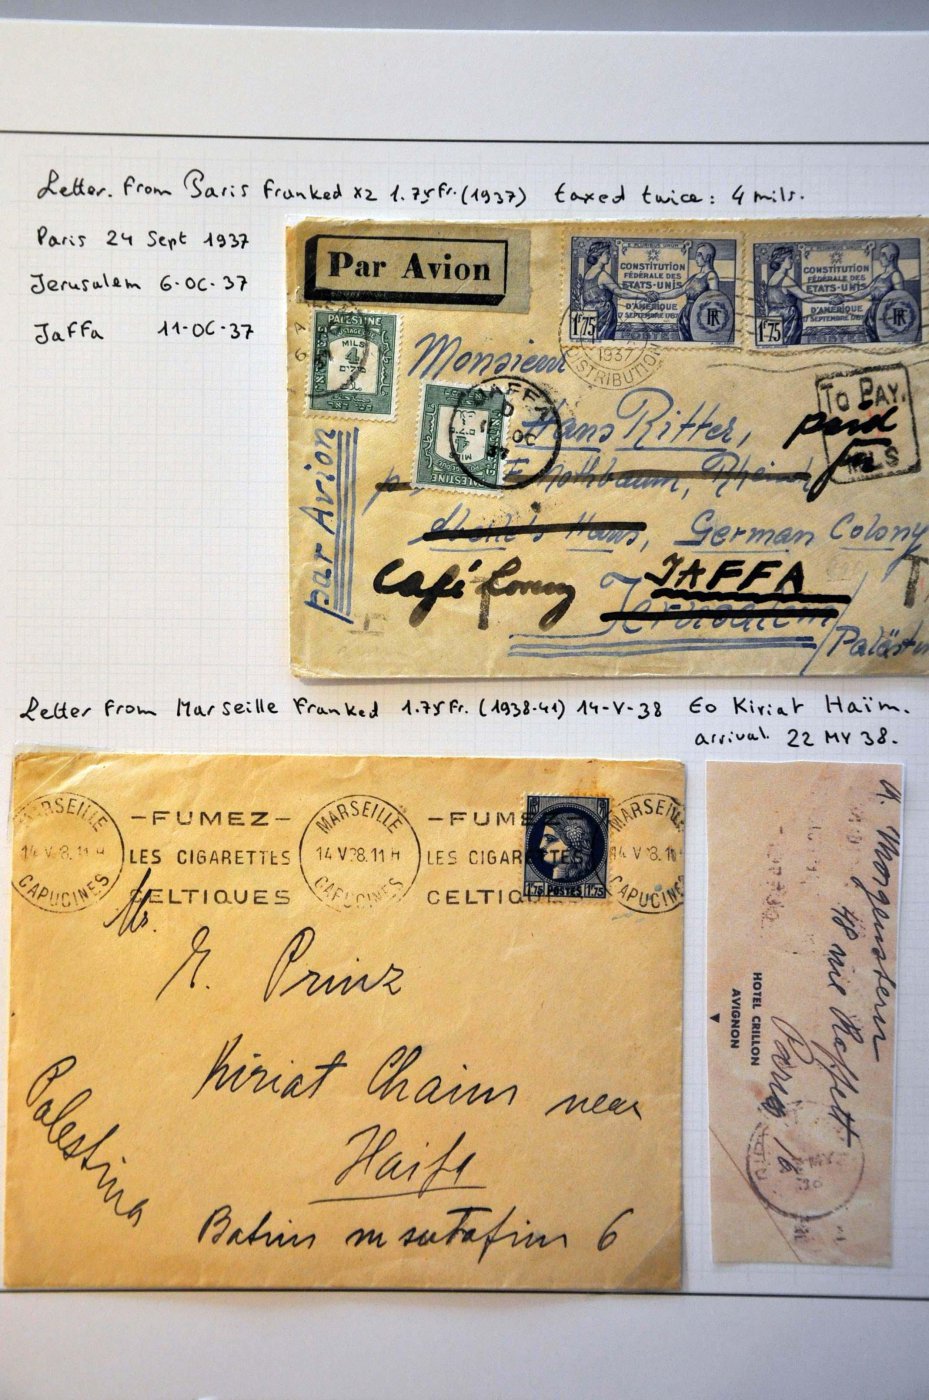 Letter From Paris Franked x2 1.75Fr. (1937) taxed twice: 4 mils.
Paris 24 Sept 1937
Jerusalem 6-OC-37
Jaffa 11-OC-37
Par Avion
E PLURIBUS UNUM
CONSTITUTION
FÉDÉRALE DES
ETATS-UNIS
D'AMÉRIQUE
17 SEPTEMBRE 1787
1F75
RF
POSTES
E PLURIBUS UNUM
CONSTITUTION
FÉDÉRALE DES
ETATS-UNIS
D'AMÉRIQUE
17 SEPTEMBRE 1787
1F75
RF
POSTES
1937
DISTRIBUTION
PALESTINE
POSTAGE DUE
MILS
4
PALESTINE
4
MILS
JAFFA
D
11 OC
37
Monsieur
Hans Ritter,
TO PAY.
paid
MLS
German Colony
par Avion
Café Lorenz
JAFFA
Jerusalem
T
T
Letter From Marseille Franked 1.75Fr. (1938-41) 14-V-38 to Kiriat Haïm.
arrival 22 MY 38.
MARSEILLE
14 V 38. 11 H
CAPUCINES
-FUMEZ-
LES CIGARETTES
CELTIQUES
MARSEILLE
14 V 38. 11 H
CAPUCINES
-FUMEZ-
LES CIGARETTES
CELTIQUES
1F75 POSTES 1F75
MARSEILLE
14 V 38. 11
CAPUCINES
Mr.
E. Prinz
Kiriat Chaim near
Haifa
Palestina
6
Morgenstern
48 rue Raffett
Paris 16
HOTEL CRILLON
AVIGNON